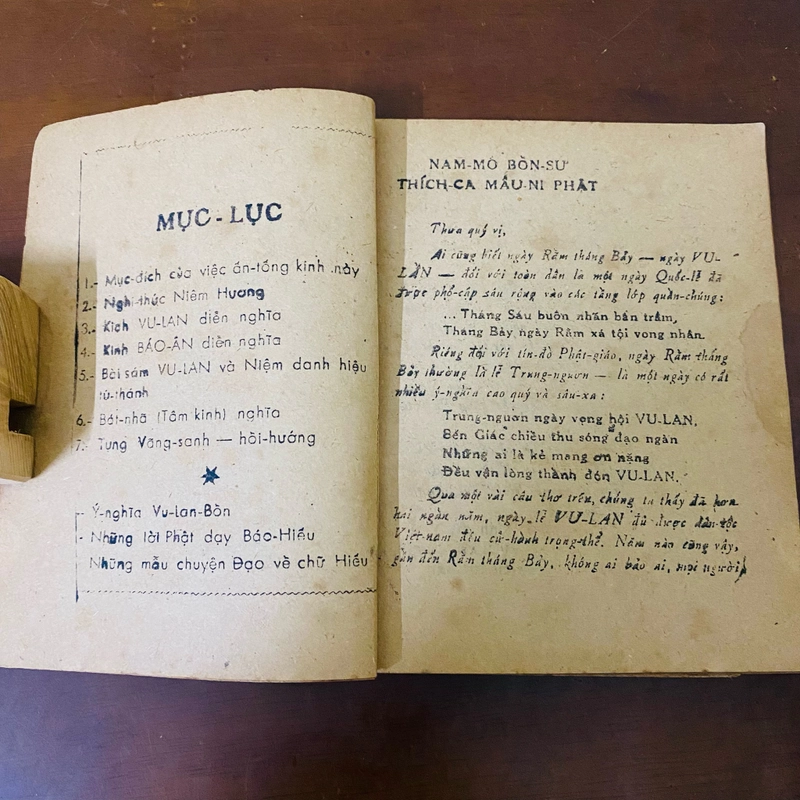 MỤC-LỤC
1.- Mục-đích của việc ấn-tống kinh này
2.- Nghi-thức Niêm Hương
3.- Kich VU-LAN diễn nghĩa
4.- Kinh BÁO-ÂN diễn nghĩa
5.- Bài sám VU-LAN và Niệm danh hiệu
tứ-thánh
6.- Bát-nhã (Tâm kinh) nghĩa
7.- Tụng Vãng-sanh — hồi-hướng
- Ý-nghĩa Vu-Lan-Bồn
- Những lời Phật dạy Báo-Hiếu
- Những mẩu chuyện Đạo về chữ Hiếu
NAM-MÔ BỒN-SƯ
THÍCH-CA MÂU-NI PHẬT
Thưa quý vị,
Ai cũng biết ngày Rằm tháng Bảy — ngày VU-
LAN — đối với toàn dân là một ngày Quốc-lễ đã
được phổ-cập sâu rộng vào các tầng lớp quần-chúng:
... Tháng Sáu buôn nhãn bán trâm,
Tháng Bảy ngày Rằm xá tội vong nhân.
Riêng đối với tín-đồ Phật-giáo, ngày Rằm tháng
Bảy thường là lễ Trung-ngươn — là một ngày có rất
nhiều ý-nghĩa cao quý và sâu-xa:
Trung-ngươn ngày vọng hội VU-LAN,
Bến Giác chiều thu sóng đạo ngàn
Những ai là kẻ mang ơn nặng
Đều vận lòng thành đón VU-LAN.
Qua một vài câu thơ trên, chúng ta thấy đã hơn
hai ngàn năm, ngày lễ VU-LAN đã được dân-tộc
Việt-nam đều cử-hành trọng-thể. Năm nào cũng vậy,
gần đến Rằm tháng Bảy, không ai bảo ai, mọi người